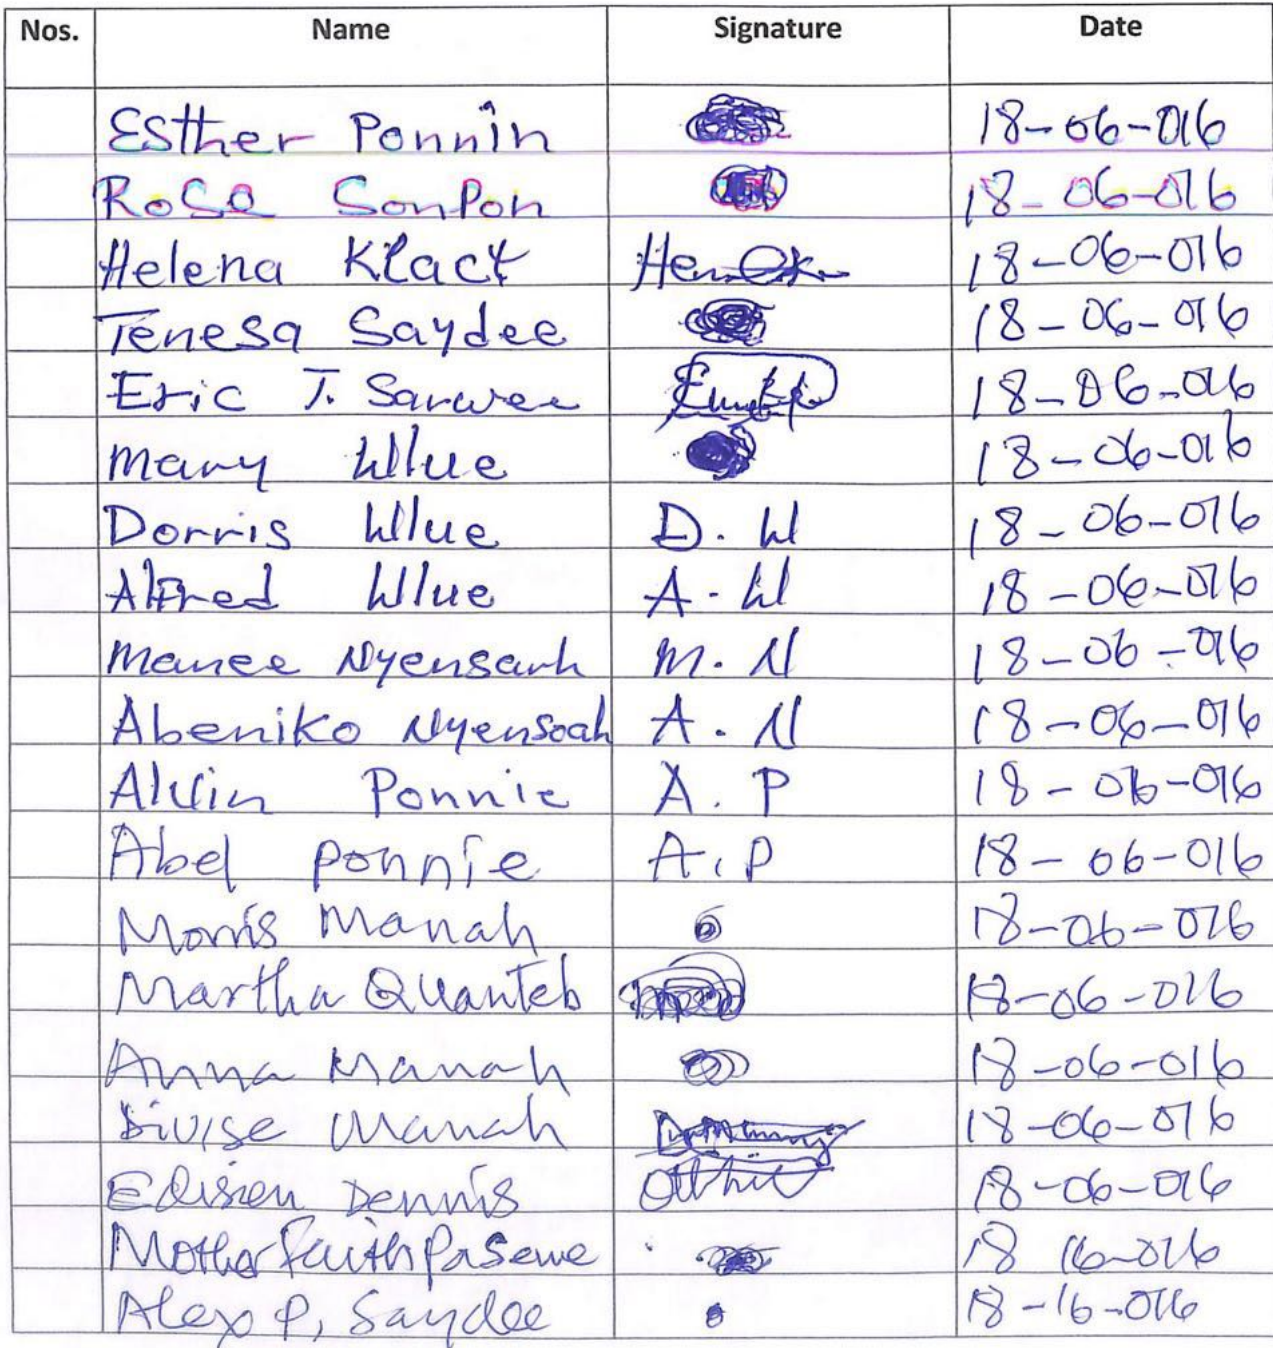 Nos. Name Signature Date
Esther Ponnin 18-06-016
Rose Sonpon 18-06-016
Helena Klact 18-06-016
Tenesa Saydee 18-06-016
Eric T. Sarwee 18-06-016
Mary Wlue 18-06-016
Dorris Wlue D. W 18-06-016
Alfred Wlue A. W 18-06-016
Manee Nyensarh M. N 18-06-016
Abeniko Nyensoah A. N 18-06-016
Alvin Ponnie A. P 18-06-016
Abel Ponnie A. P 18-06-016
Morris Manah 18-06-016
Martha Quanteb 18-06-016
Anna Manah 18-06-016
Divise Manah 18-06-016
Edison Dennis 18-06-016
Mother Faith Pasewe 18 16-016
Alex P, Saydee 18-16-016